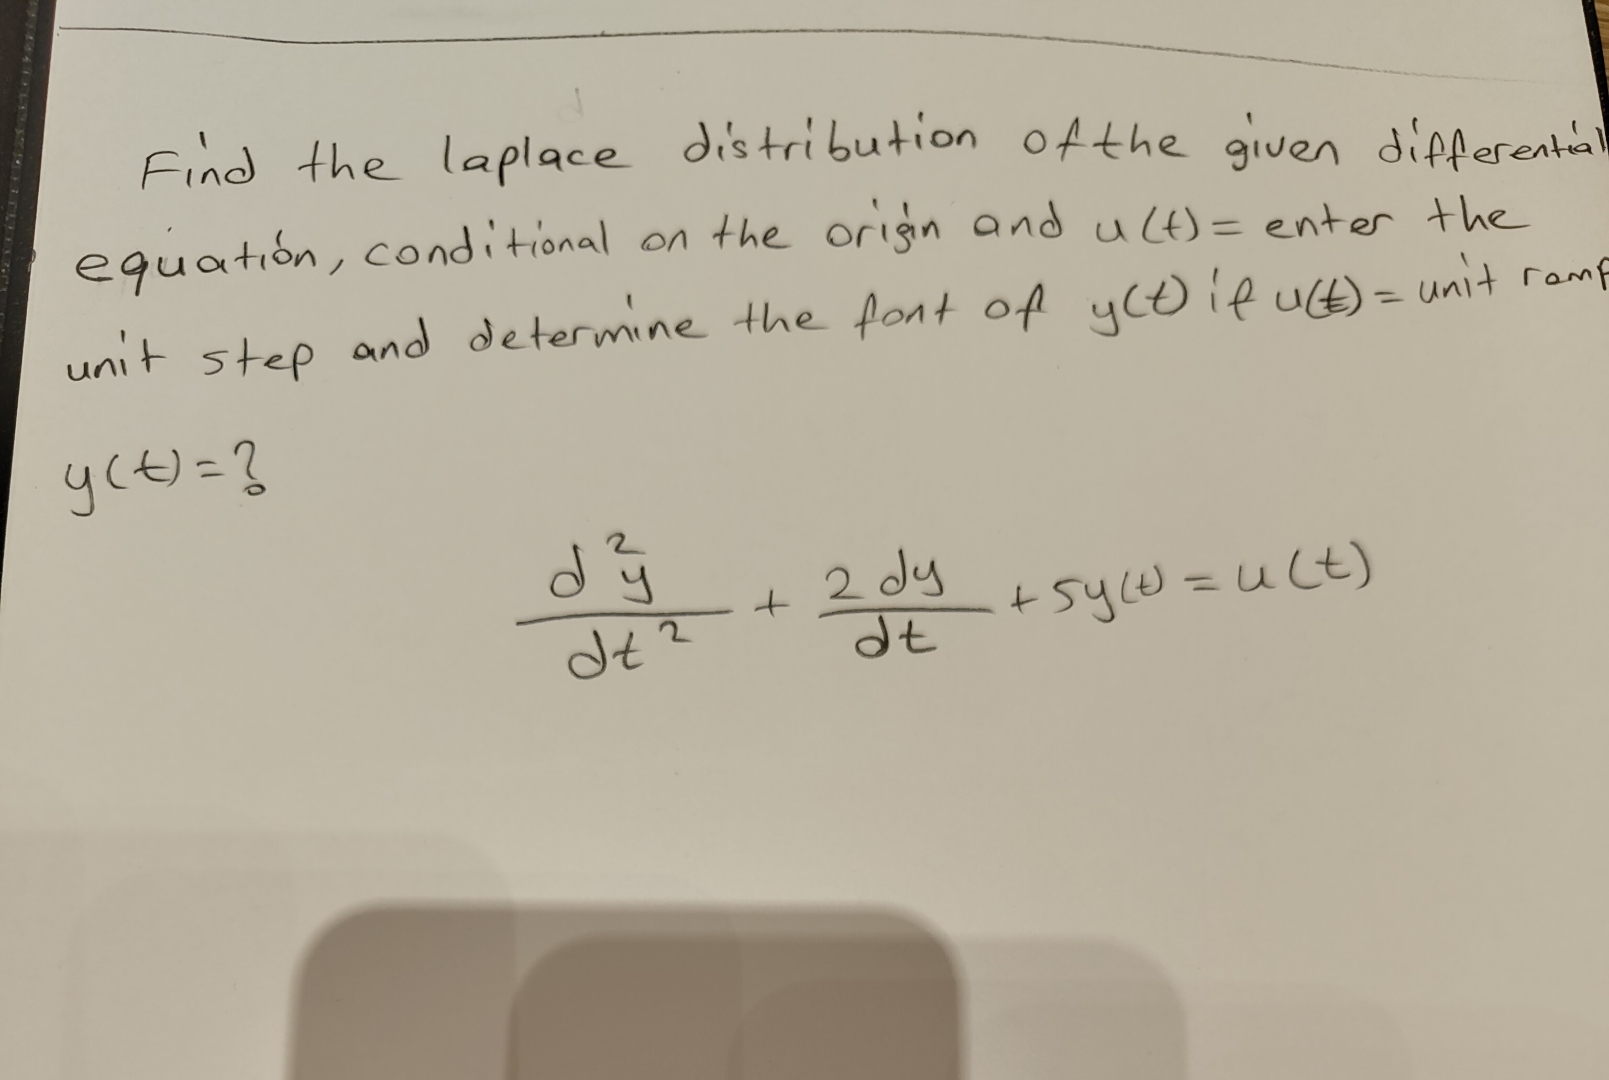 Find the laplace distribution of the given differential
equation, conditional on the origin and u(t) = enter the
unit step and determine the font of y(t) if u(t) = unit ramp
y(t) = ?
d²y/dt² + 2dy/dt + 5y(t) = u(t)